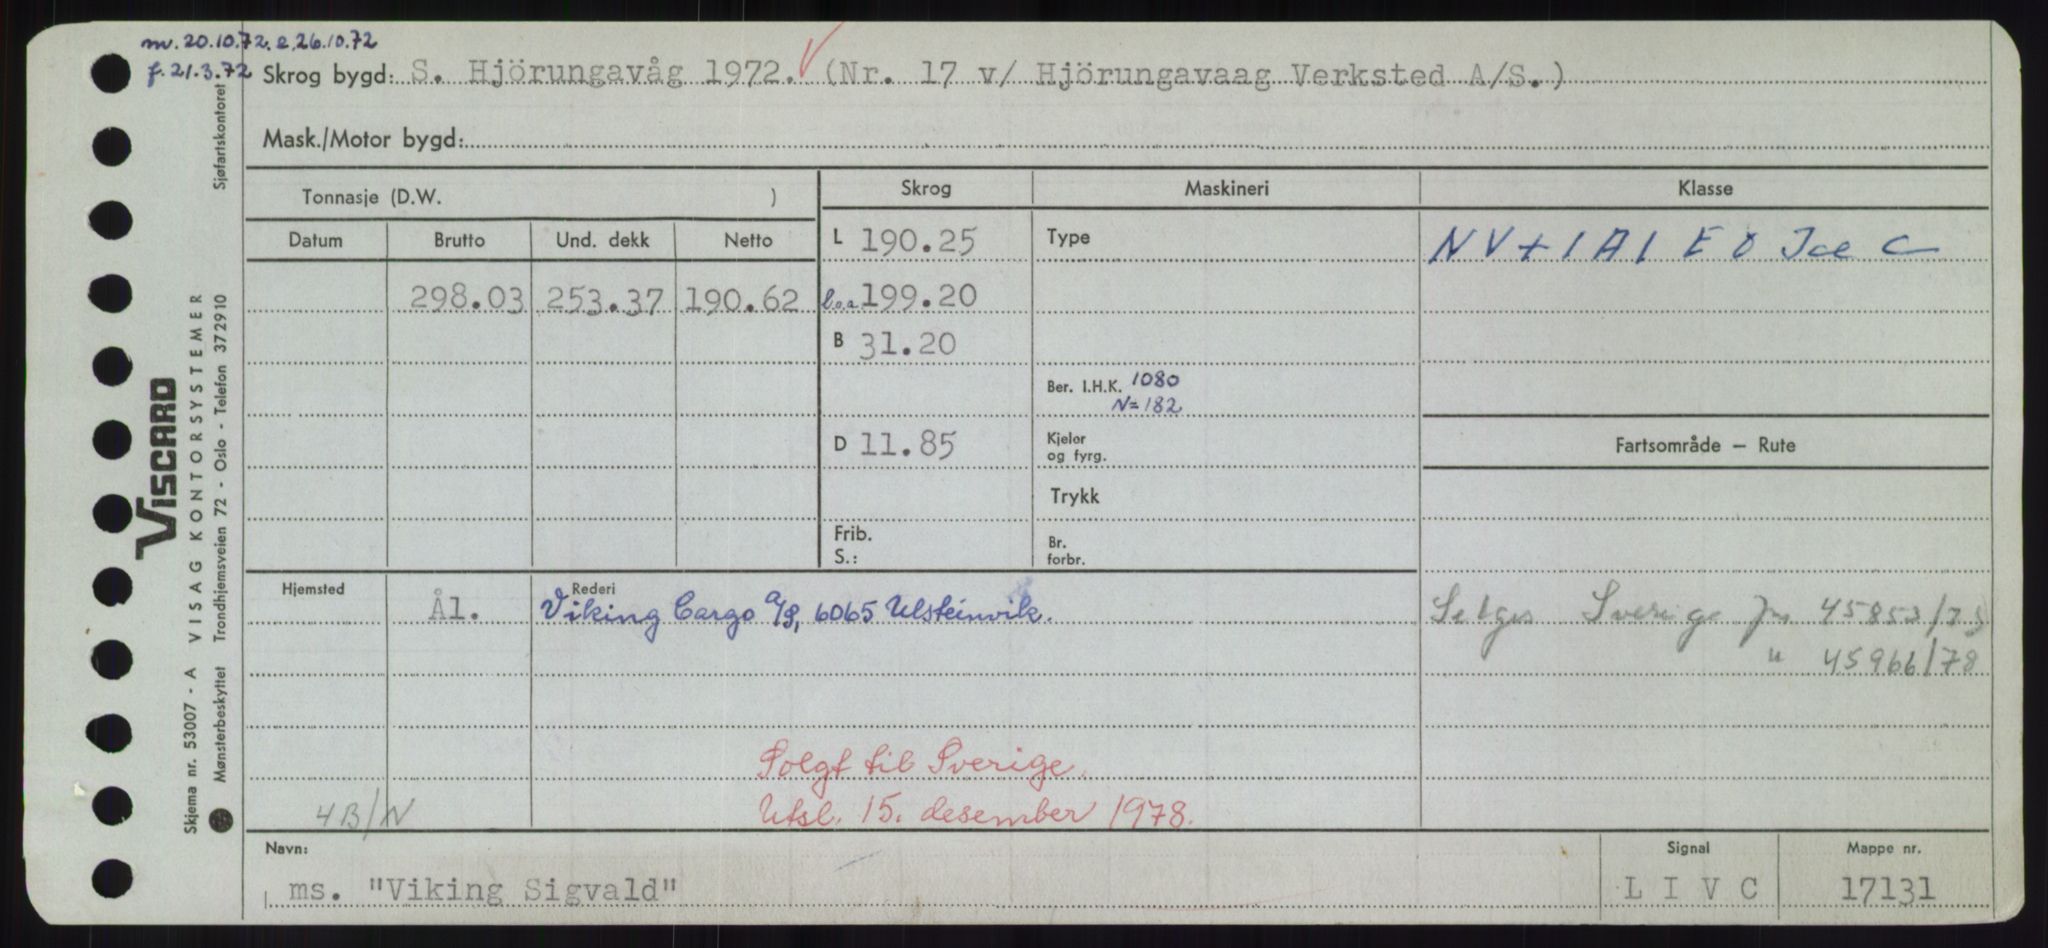 nv. 20.10.72. e. 26.10.72
f. 21.3.72 Skrog bygd: S. Hjörungavåg 1972. (Nr. 17 v/ Hjörungavaag Verksted A/S.)
Mask./Motor bygd:
Tonnasje (D.W. )
Skrog Maskineri Klasse
Datum Brutto Und. dekk Netto
L 190.25 Type NV+1A1 E0 Ice C
298.03 253.37 190.62 l.o.a 199.20
B 31.20
Ber. I.H.K. 1080
N=182
D 11.85 Kjeler og fyrg.
Fartsområde — Rute
Trykk
Frib.
S.:
Br. forbr.
Hjemsted Ål. Rederi Viking Cargo A/S, 6065 Ulsteinvik.
Selges Sverige Jnr 45853/78
" 45966/78
Solgt til Sverige.
4B/N Utsl. 15. desember 1978.
Navn: ms. "Viking Sigvald"
Signal LIVC
Mappe nr. 17131
VISCARD
Skjema nr. 53007 - A VISAG KONTORSYSTEMER
Mønsterbeskyttet Trondhjemsveien 72 - Oslo - Telefon 372910 Sjøfartskontoret